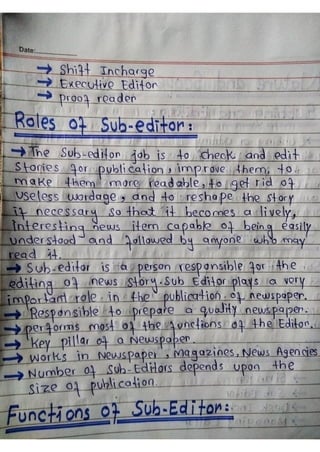 Date:
→ Shift Incharge
→ Executive Editor
→ proof reader
Roles of Sub-editor:
→ The Sub-editor job is to check and edit
Stories for publication, improve them, to
make them more readable, to get rid of
useless wordage, and to reshape the story
if necessary so that it becomes a lively,
Interesting news item capable of being easily
understood and followed by anyone who may
read it.
→ Sub-editor is a person responsible for the
editing of news story. Sub Editor plays a very
important role in the publication of newspaper.
→ Responsible to prepare a quality newspaper.
→ performs most of the functions of the Editor.
→ Key pillar of a Newspaper.
→ Works in Newspaper, Magazines, News Agencies
→ Number of Sub-Editors depends upon the
size of publication.
Functions of Sub-Editor: